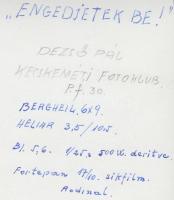 „ENGEDJETEK BE!"
DEZSŐ PÁL
KECSKEMÉTI FOTOKLUB.
Pf. 30.
BERGHEIL 6x9.
HELIAR 3,5/10,5.
Bl. 5,6. 1/25s 500W. derítve.
Fortepan 17/10. síkfilm.
Rodinal.